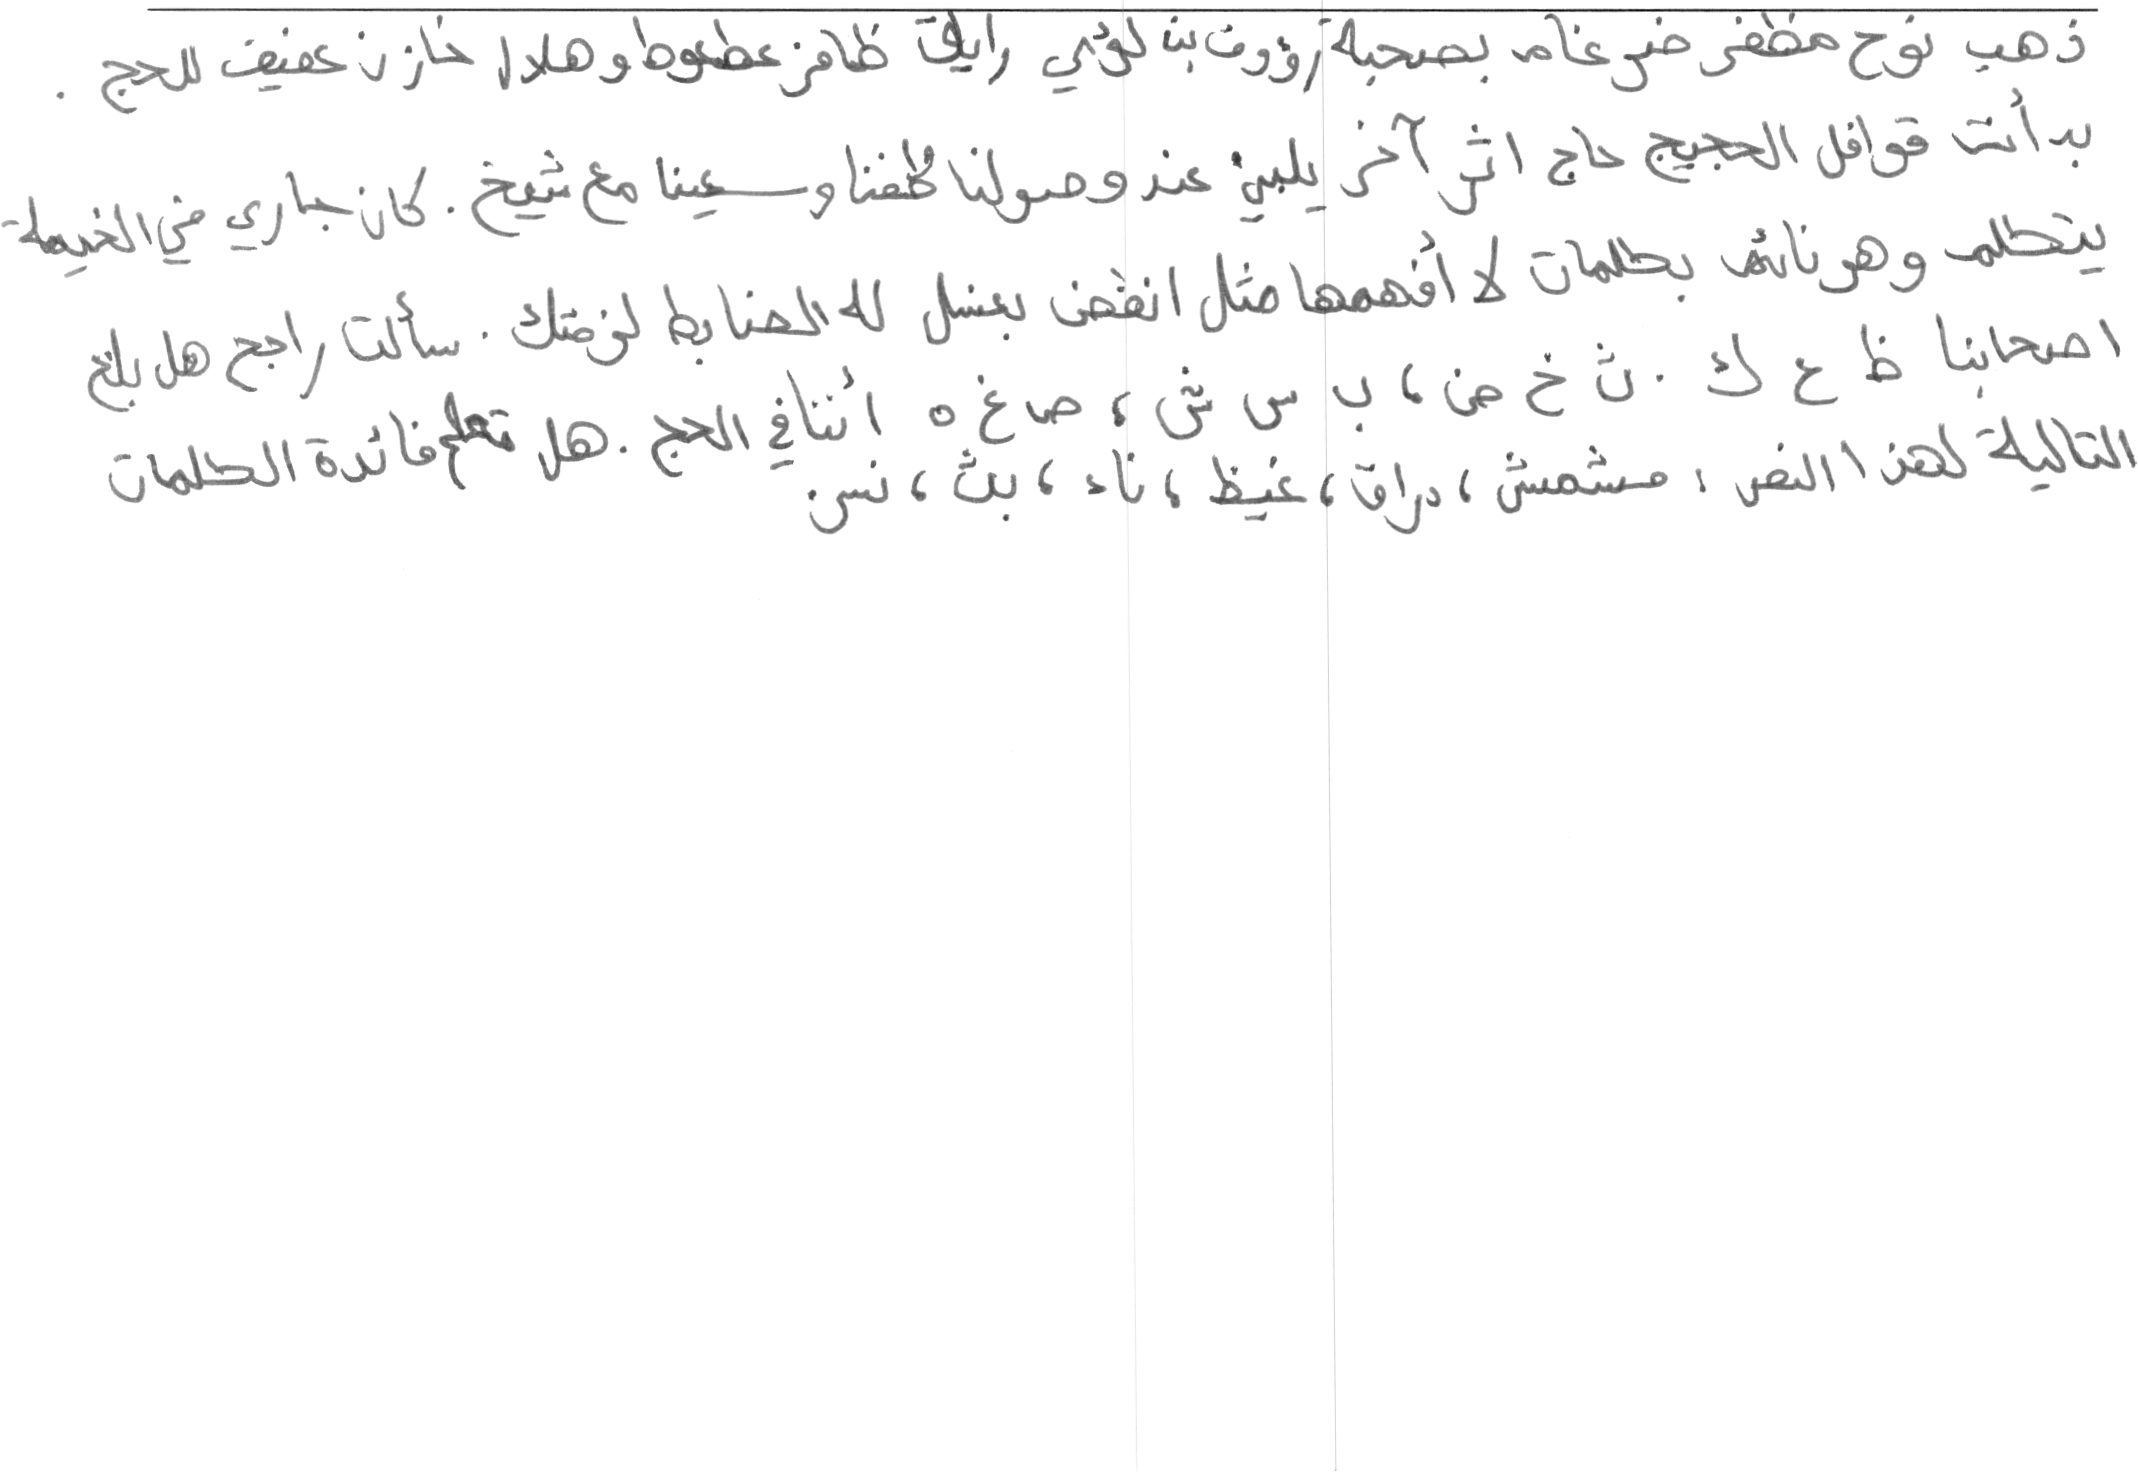 ذهب نوح مظفر ضرغام بصحبة رؤوف بن لؤي رايق ظافر عطعوط و هلال خازن عفيف للحج .
بدأت قوافل الحجيج حاج اثر آخر يلبي عند وصولنا طفنا و سعينا مع شيخ . كان جاري في الخيمة
يتكلم و هو نائم بكلمات لا أفهمها مثل انفض بعسل له الضابط لزمتك . سألت راجح هل بلغ
اصحابنا ظ ع ك . ث خ ض ، ب س ش ، ص غ ه أننا في الحج . هل تعلم فائدة الكلمات
التالية لهذا النص : مشمش ، دراق ، غيظ ، ناء ، بث ، نسر